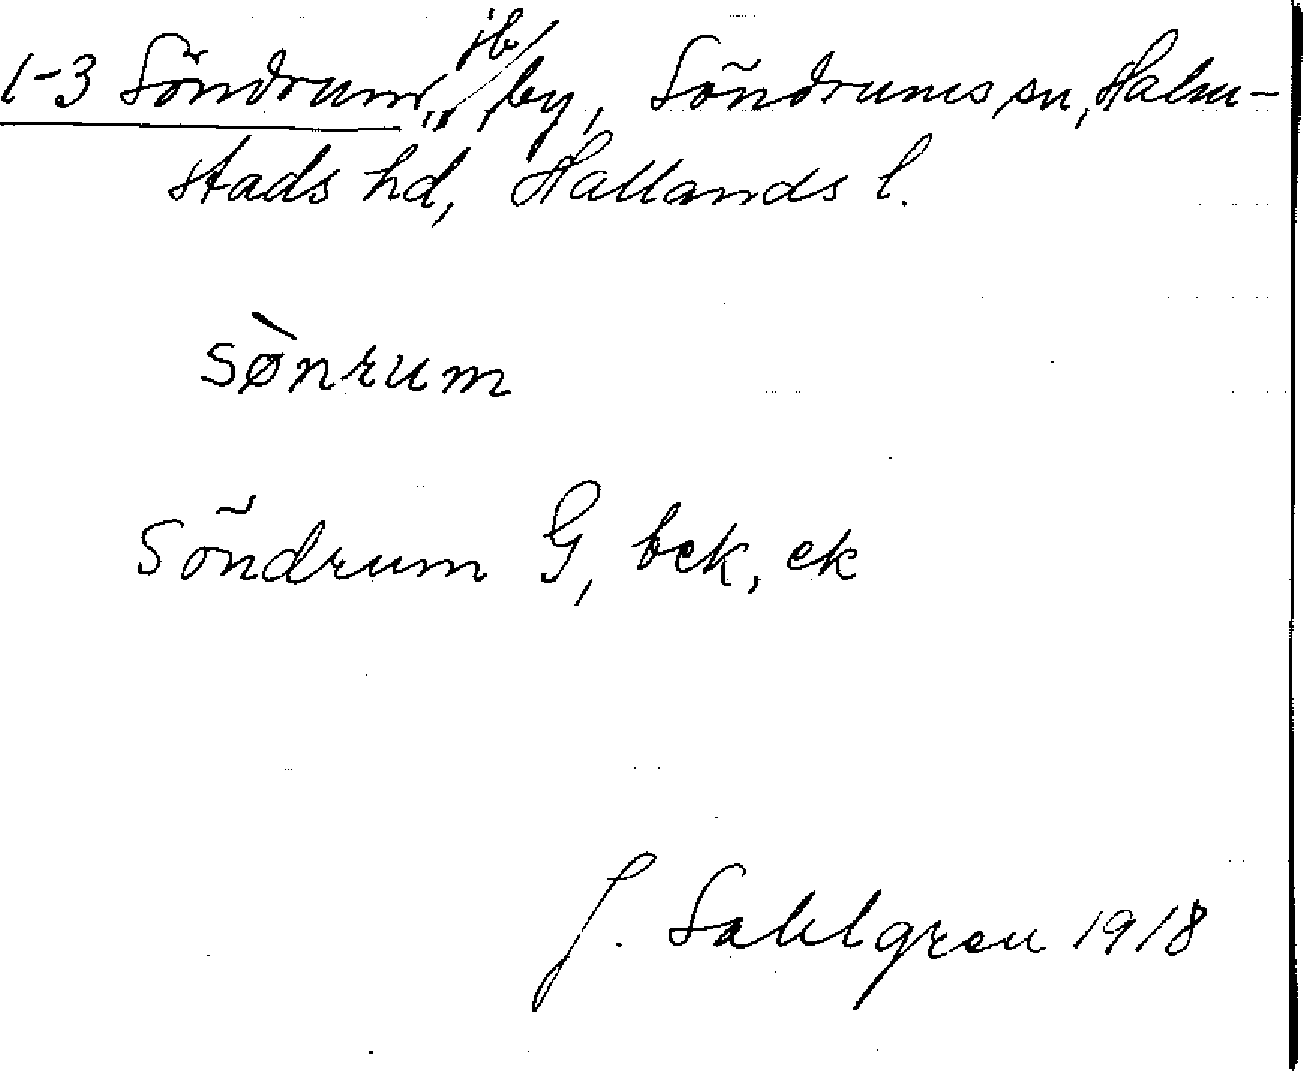 1-3 Söndrum, jb by, Söndrums sn, Halm-
stads hd, Hallands l.
sø̀nrum
Söndrum G, bek, ek
J. Sahlgren 1918